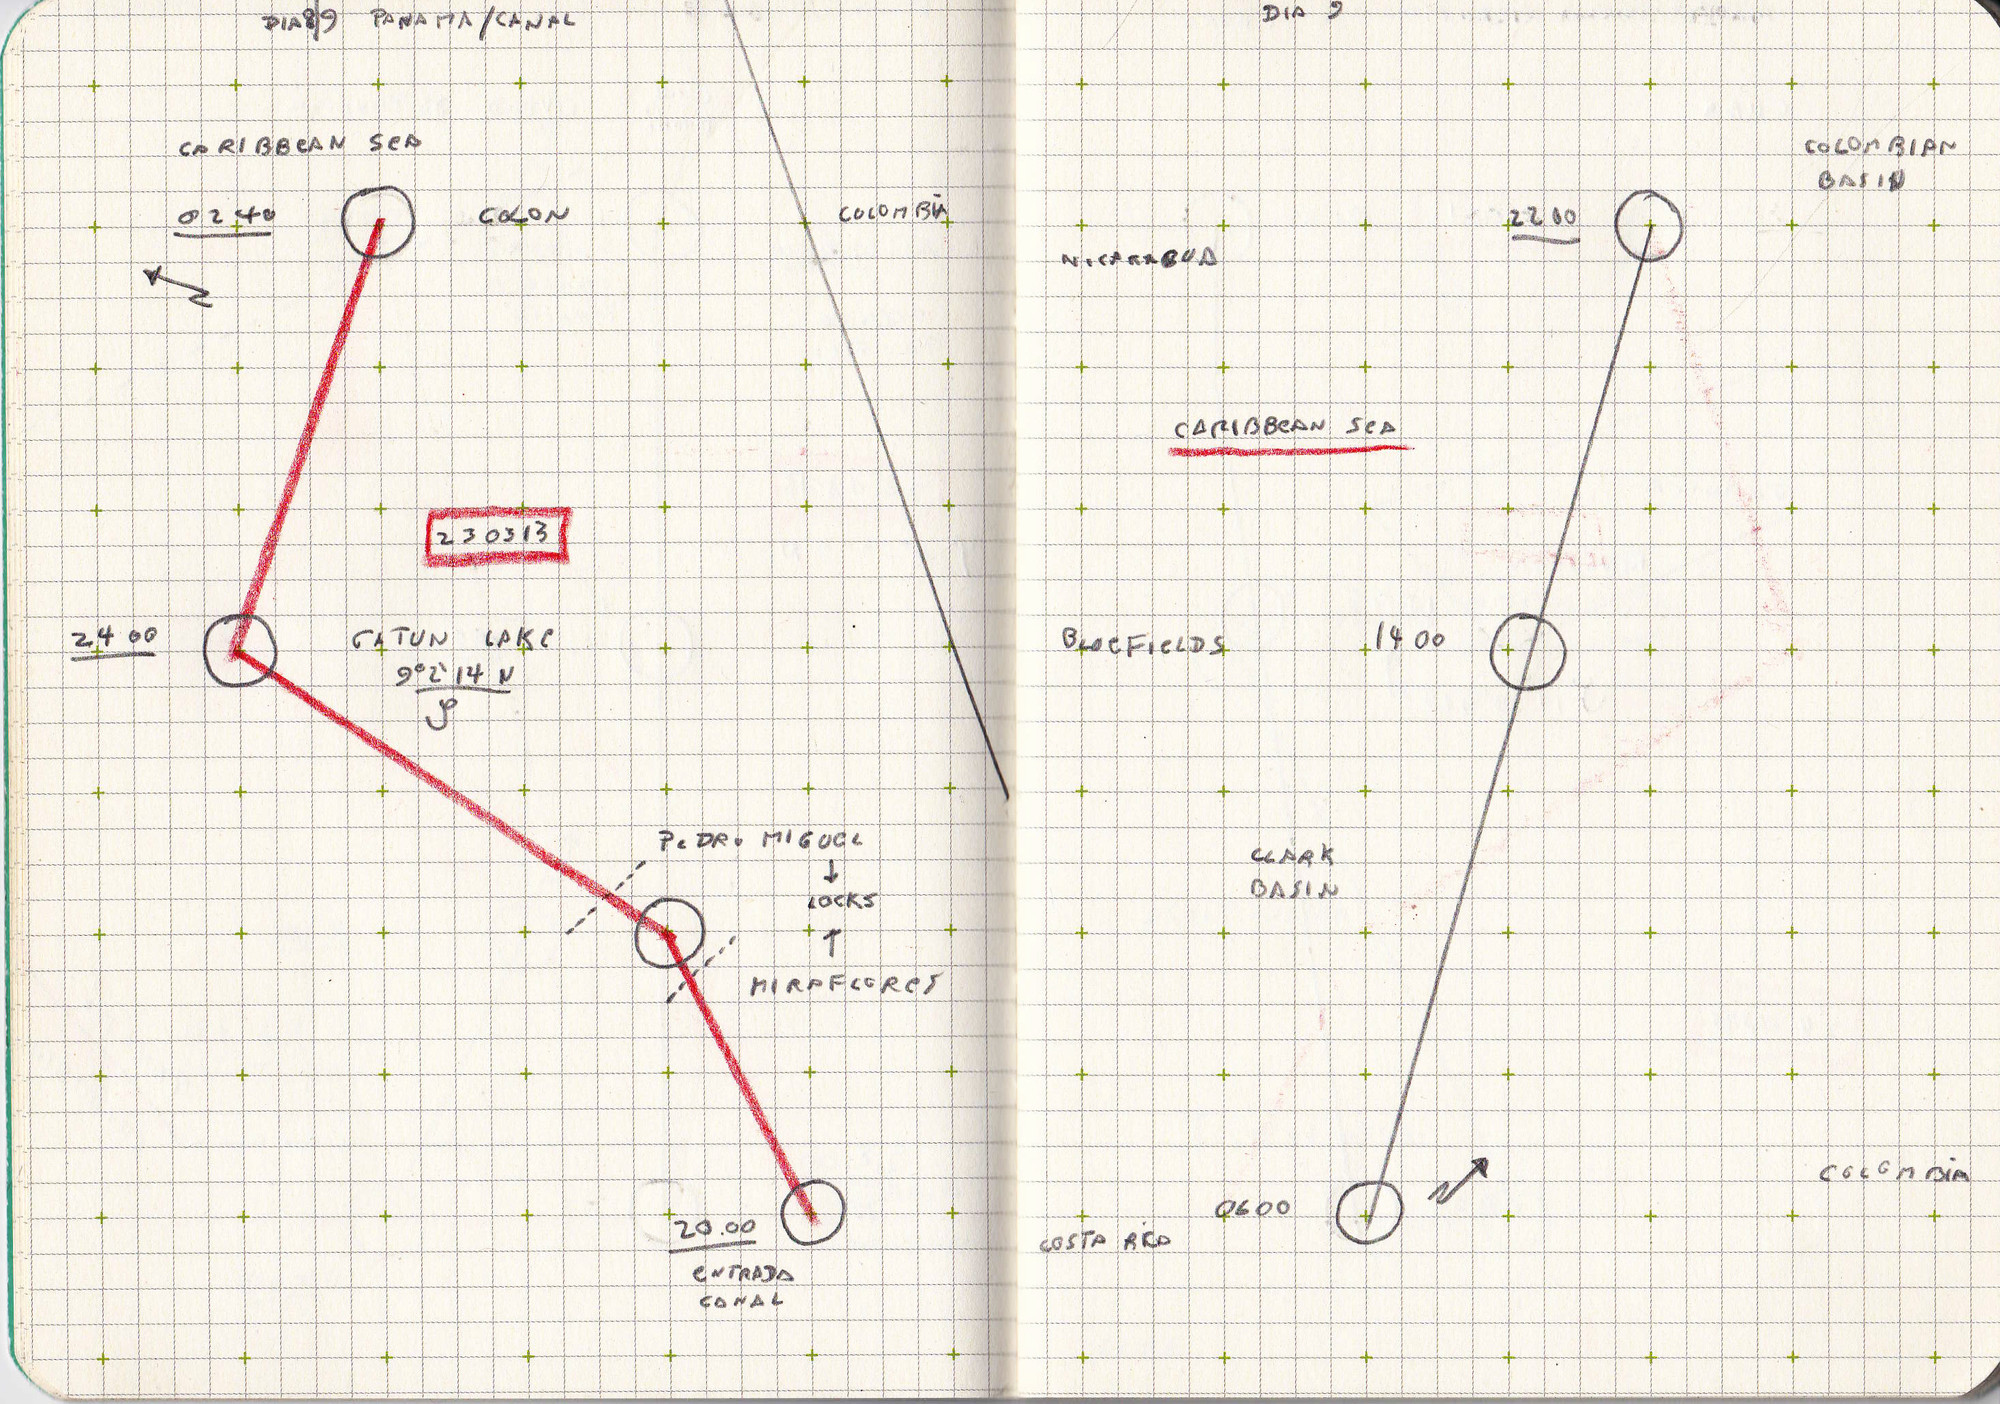 DIA 8/9 PANAMA/CANAL
CARIBBEAN SEA
0240
COLON
COLOMBIA
230313
2400
GATUN LAKE
9°2'14 N
PEDRO MIGUEL
↓
LOCKS
↑
MIRAFLORES
20.00
ENTRADA
CANAL
DIA 9
COLOMBIAN
BASIN
2200
NICARAGUA
CARIBBEAN SEA
BLUEFIELDS
1400
CLARK
BASIN
COLOMBIA
0600
COSTA RICA